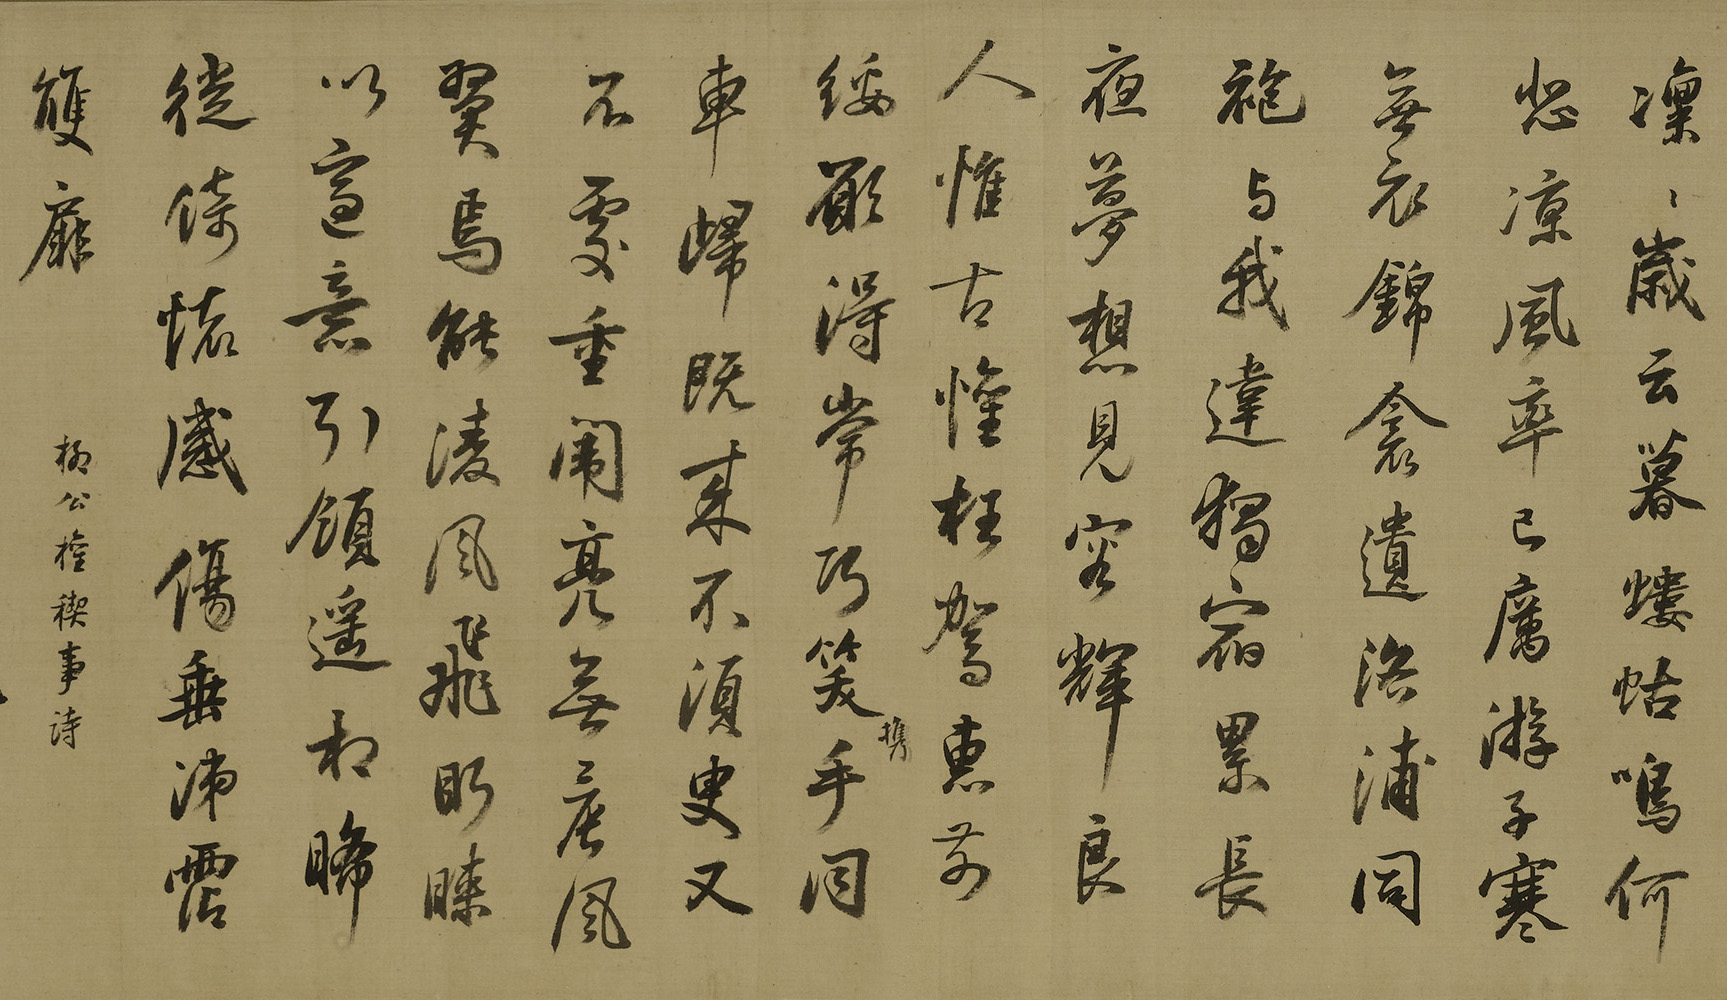 凜〻歲云暮螻蛄鳴何
悲涼風率已厲游子寒
無衣錦衾遺洛浦同
袍與我違獨宿累長
夜夢想見容輝良
人惟古懽枉駕惠前
綏願得常巧笑携手同
車歸既來不須臾又
不處重闈亮無晨風
翼焉能淩風飛眄睞
以適意引領遥相睎
徙倚懷感傷垂涕霑
雙扉
柳公權禊事詩